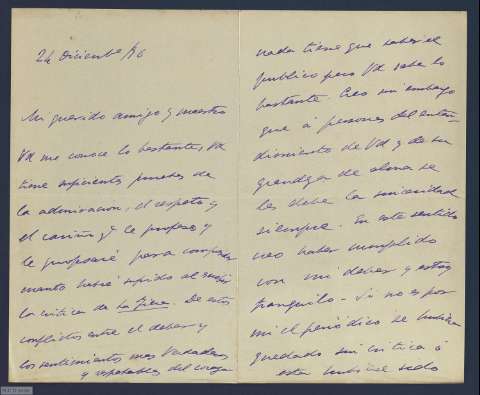 24 Diciembre/96
Mi querido amigo y maestro
Vd me conoce lo bastante, Vd
tiene suficientes pruebas de
la admiracion, el respeto y
el cariño q le profeso y
le profesaré para
cuanto habré sufrido al escribir
la critica de La Fiera. De estos
conflictos entre el deber y
los sentimientos mas verdaderos
y respetables del corazon
nada tiene que saber el
publico pero Vd sabe lo
bastante. Creo sin embargo
que á personas del enten-
dimiento de Vd y de su
grandeza de alma se
les debe la sinceridad
siempre. En este sentido
creo haber cumplido
con mi deber y estoy
tranquilo – Si no es por
mi el periódico se hubiera
quedado sin critica ó
esta hubiese sido